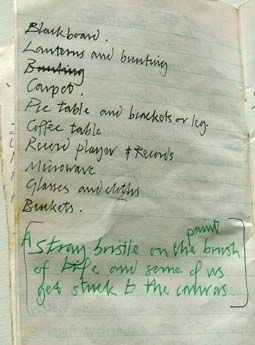 Blackboard.
Lanterns and bunting
Bunting
Carpet.
Pic table and brackets or leg.
Coffee table
Record player & Records
Microwave
Glasses and cloths
Buckets.
A stray bristle on the paint brush
of life and some of us
get stuck to the canvas